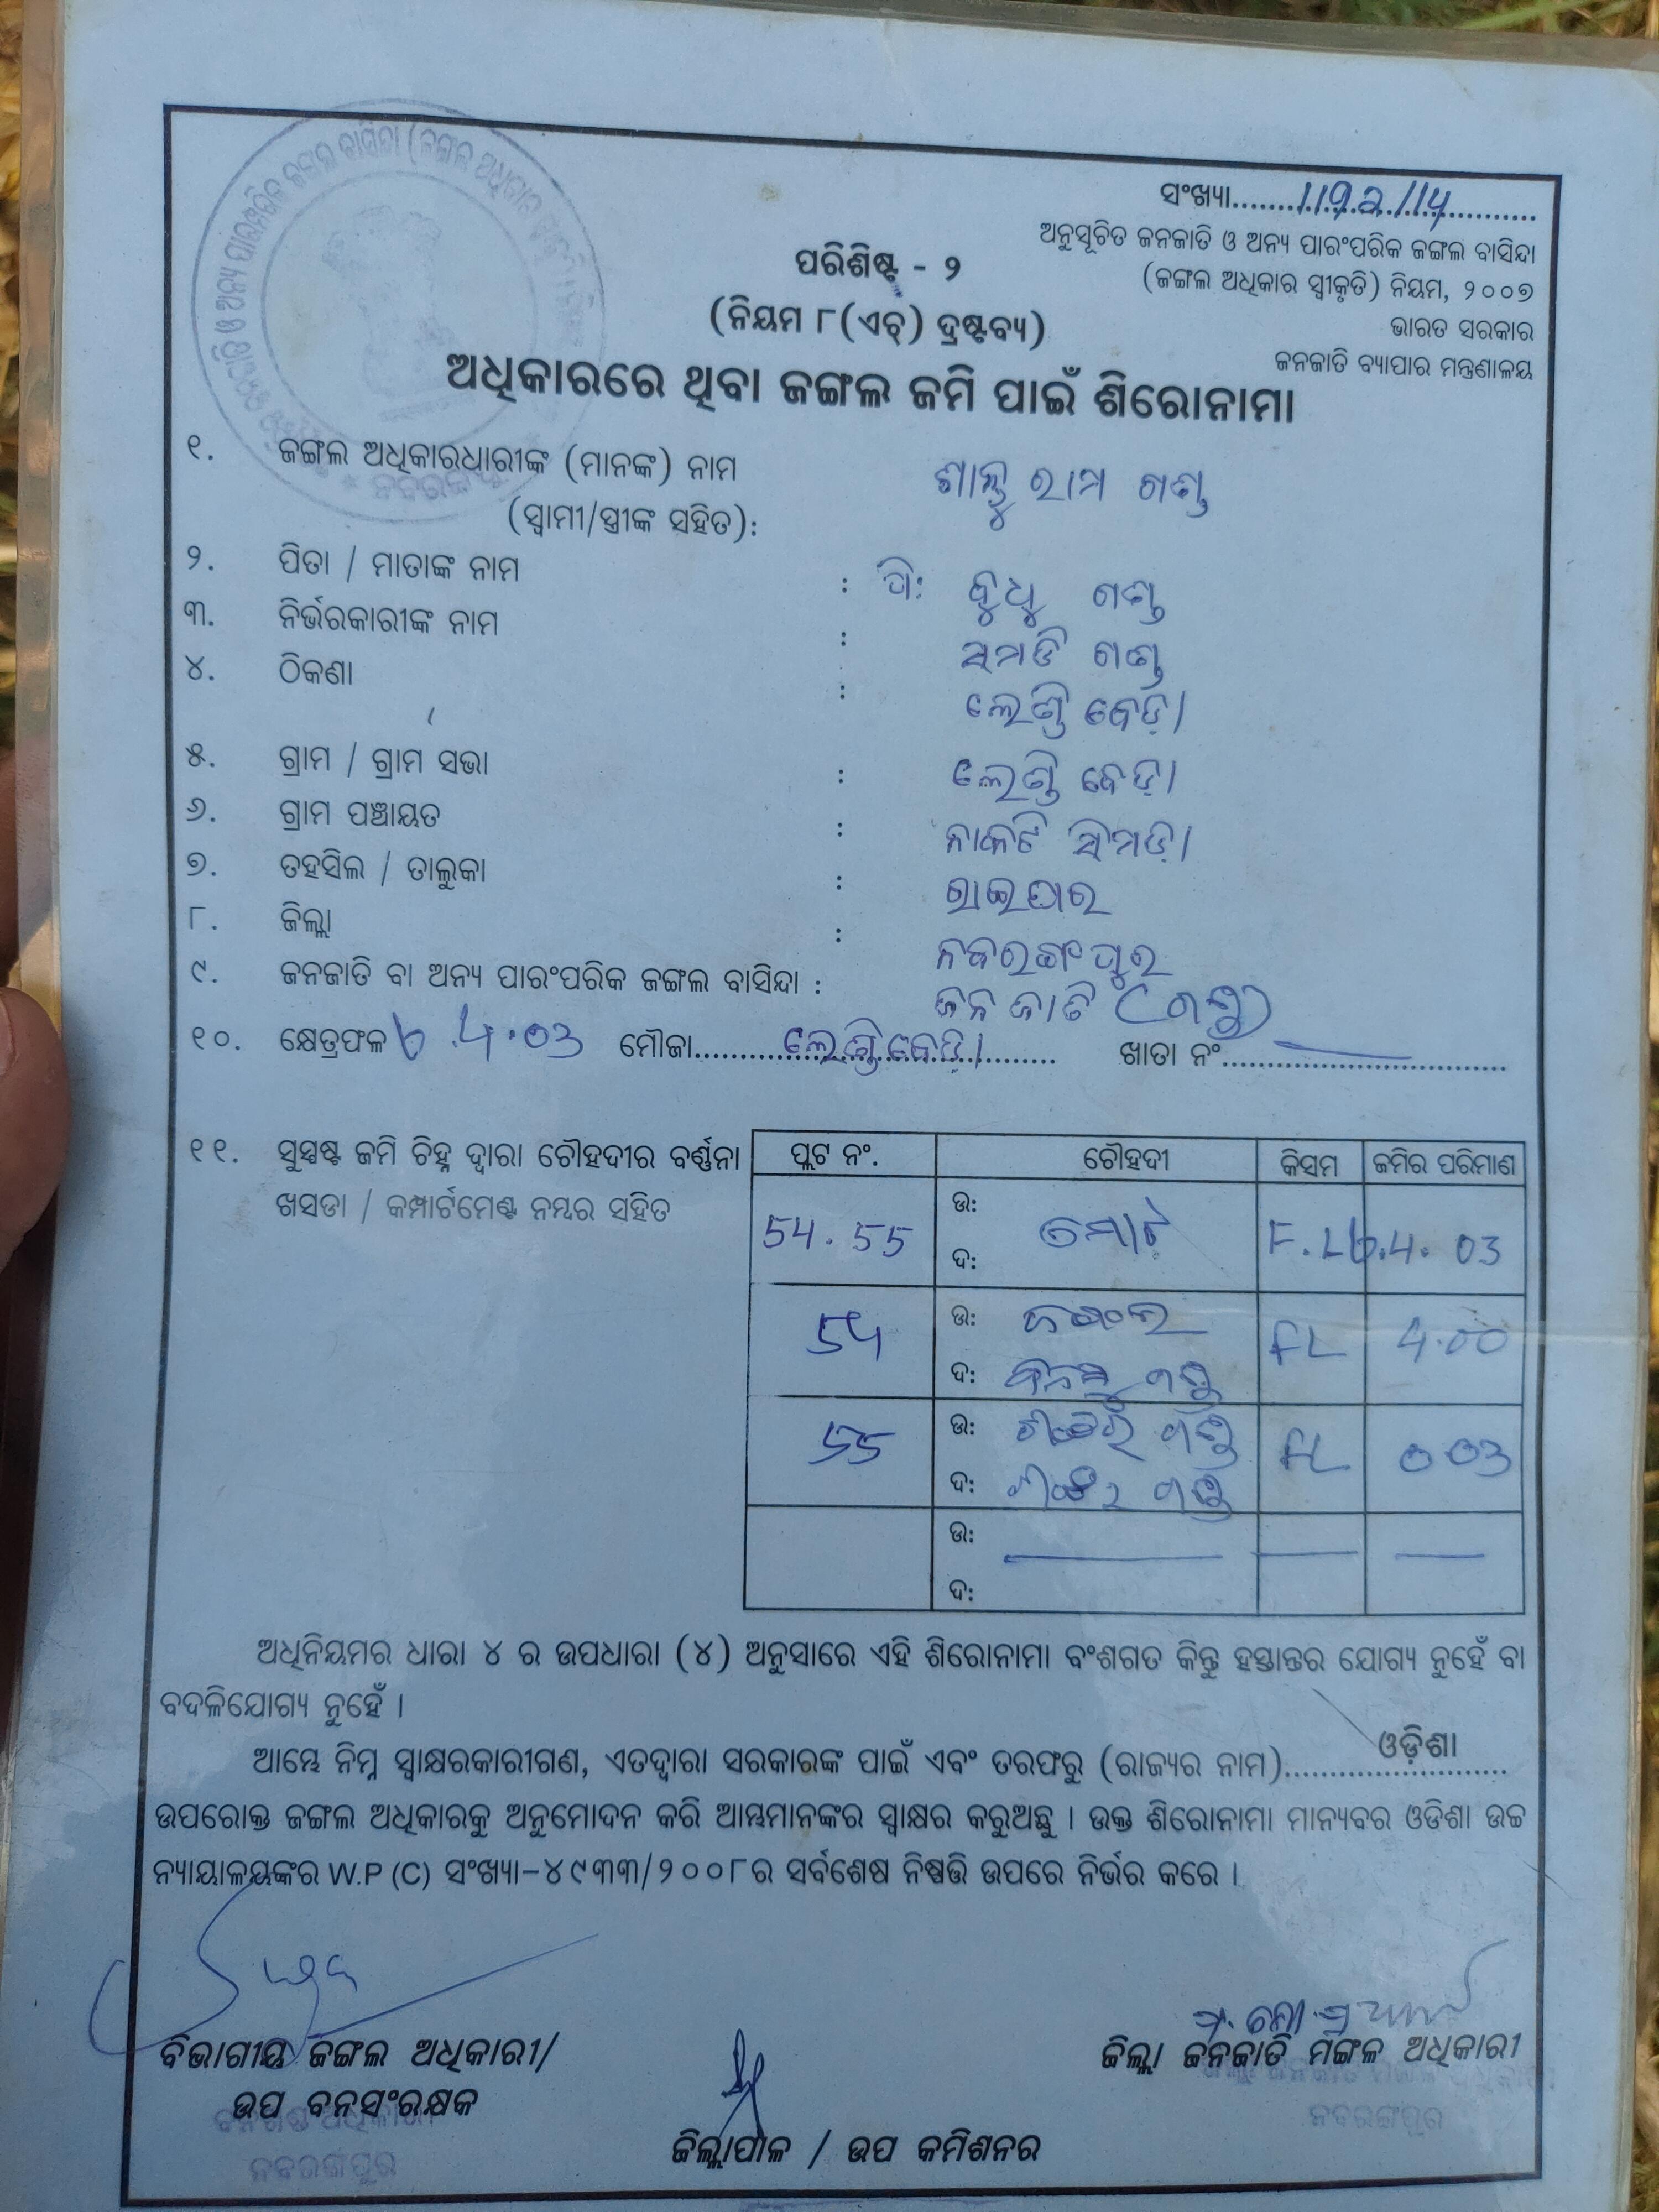 ସଂଖ୍ୟା.......1192/14..........
ଅନୁସୂଚିତ ଜନଜାତି ଓ ଅନ୍ୟ ପାରଂପରିକ ଜଙ୍ଗଲ ବାସିନ୍ଦା
(ଜଙ୍ଗଲ ଅଧିକାର ସ୍ୱୀକୃତି) ନିୟମ, ୨୦୦୭
ଭାରତ ସରକାର
ଜନଜାତି ବ୍ୟାପାର ମନ୍ତ୍ରଣାଳୟ
ପରିଶିଷ୍ଟ - ୨
(ନିୟମ ୮(ଏଚ୍) ଦ୍ରଷ୍ଟବ୍ୟ)
ଅଧିକାରରେ ଥିବା ଜଙ୍ଗଲ ଜମି ପାଇଁ ଶିରୋନାମା
୧. ଜଙ୍ଗଲ ଅଧିକାରଧାରୀଙ୍କ (ମାନଙ୍କ) ନାମ ରାମ ଗଣ୍ଡ
(ସ୍ୱାମୀ/ସ୍ତ୍ରୀଙ୍କ ସହିତ):
୨. ପିତା / ମାତାଙ୍କ ନାମ : ପି: ବୁଧୁ ଗଣ୍ଡ
୩. ନିର୍ଭରକାରୀଙ୍କ ନାମ : ଗଣ୍ଡ
୪. ଠିକଣା : ଲେଣ୍ଡି ବେଡ଼ା
୫. ଗ୍ରାମ / ଗ୍ରାମ ସଭା : ଲେଣ୍ଡି ବେଡ଼ା
୬. ଗ୍ରାମ ପଞ୍ଚାୟତ : ନାକଟି ସିମଡ଼ା
୭. ତହସିଲ / ତାଲୁକା : ରାଇଘର
୮. ଜିଲ୍ଲା : ନବରଙ୍ଗପୁର
୯. ଜନଜାତି ବା ଅନ୍ୟ ପାରଂପରିକ ଜଙ୍ଗଲ ବାସିନ୍ଦା : ଜନ ଜାତି (ଗଣ୍ଡ)
୧୦. କ୍ଷେତ୍ରଫଳ 4.03 ମୌଜା.......ଲେଣ୍ଡିବେଡ଼ା....... ଖାତା ନଂ..............
୧୧. ସୁସ୍ପଷ୍ଟ ଜମି ଚିହ୍ନ ଦ୍ୱାରା ଚୌହଦୀର ବର୍ଣ୍ଣନା
ଖସଡା / କମ୍ପାର୍ଟମେଣ୍ଟ ନମ୍ବର ସହିତ
ପ୍ଲଟ ନଂ. ଚୌହଦୀ କିସମ ଜମିର ପରିମାଣ
54. 55 ଉ: ଦ: ମୋଟ F.L 4.03
54 ଉ: ଜଙ୍ଗଲ FL 4.00
ଦ: ଗଣ୍ଡ
55 ଉ: ଗଣ୍ଡ FL 0.03
ଦ: ଗଣ୍ଡ
ଉ:
ଦ:
ଅଧିନିୟମର ଧାରା ୪ ର ଉପଧାରା (୪) ଅନୁସାରେ ଏହି ଶିରୋନାମା ବଂଶଗତ କିନ୍ତୁ ହସ୍ତାନ୍ତର ଯୋଗ୍ୟ ନୁହେଁ ବା
ବଦଳିଯୋଗ୍ୟ ନୁହେଁ ।
ଆମ୍ଭେ ନିମ୍ନ ସ୍ୱାକ୍ଷରକାରୀଗଣ, ଏତଦ୍ୱାରା ସରକାରଙ୍କ ପାଇଁ ଏବଂ ତରଫରୁ (ରାଜ୍ୟର ନାମ).......ଓଡ଼ିଶା.......
ଉପରୋକ୍ତ ଜଙ୍ଗଲ ଅଧିକାରକୁ ଅନୁମୋଦନ କରି ଆମ୍ଭମାନଙ୍କର ସ୍ୱାକ୍ଷର କରୁଅଛୁ । ଉକ୍ତ ଶିରୋନାମା ମାନ୍ୟବର ଓଡିଶା ଉଚ୍ଚ
ନ୍ୟାୟାଳୟଙ୍କର W.P (C) ସଂଖ୍ୟା-୪୯୩୩/୨୦୦୮ର ସର୍ବଶେଷ ନିଷ୍ପତ୍ତି ଉପରେ ନିର୍ଭର କରେ ।
ବିଭାଗୀୟ ଜଙ୍ଗଲ ଅଧିକାରୀ/
ଉପ ବନସଂରକ୍ଷକ
ବନଖଣ୍ଡ ଅଧିକାରୀ
ନବରଙ୍ଗପୁର
ଜିଲ୍ଲାପାଳ / ଉପ କମିଶନର
ଜିଲ୍ଲା ଜନଜାତି ମଙ୍ଗଳ ଅଧିକାରୀ
ଜିଲ୍ଲା ଜନଜାତି ମଙ୍ଗଳ ଅଧିକାରୀ
ନବରଙ୍ଗପୁର